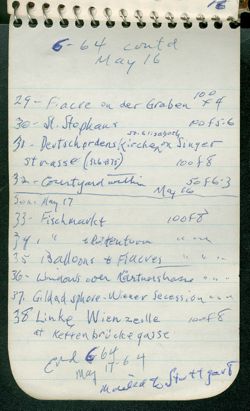 16
6-64 contd
May 16
29- Fiacre on der Graben 100 f4
30- St. Stephans 100 f5-6
St. Elizabeth
31- Deutschordens Kirche on Singer
strasse (516-875) 100 f8
32- Courtyard within 50 f6.3
May 16
Sun. May 17
33- Fischmarkt 100 f8
34 " "
35 Balloons & Fiacres " " "
36- Windows over Kärtnerstrasse " " "
37. Gilded sphere-Wiener Secession " " "
38 Linke Wienzeille 100 f8
at Kettenbrückegasse
End 6 64
May 17-64
mailed to Stuttgart